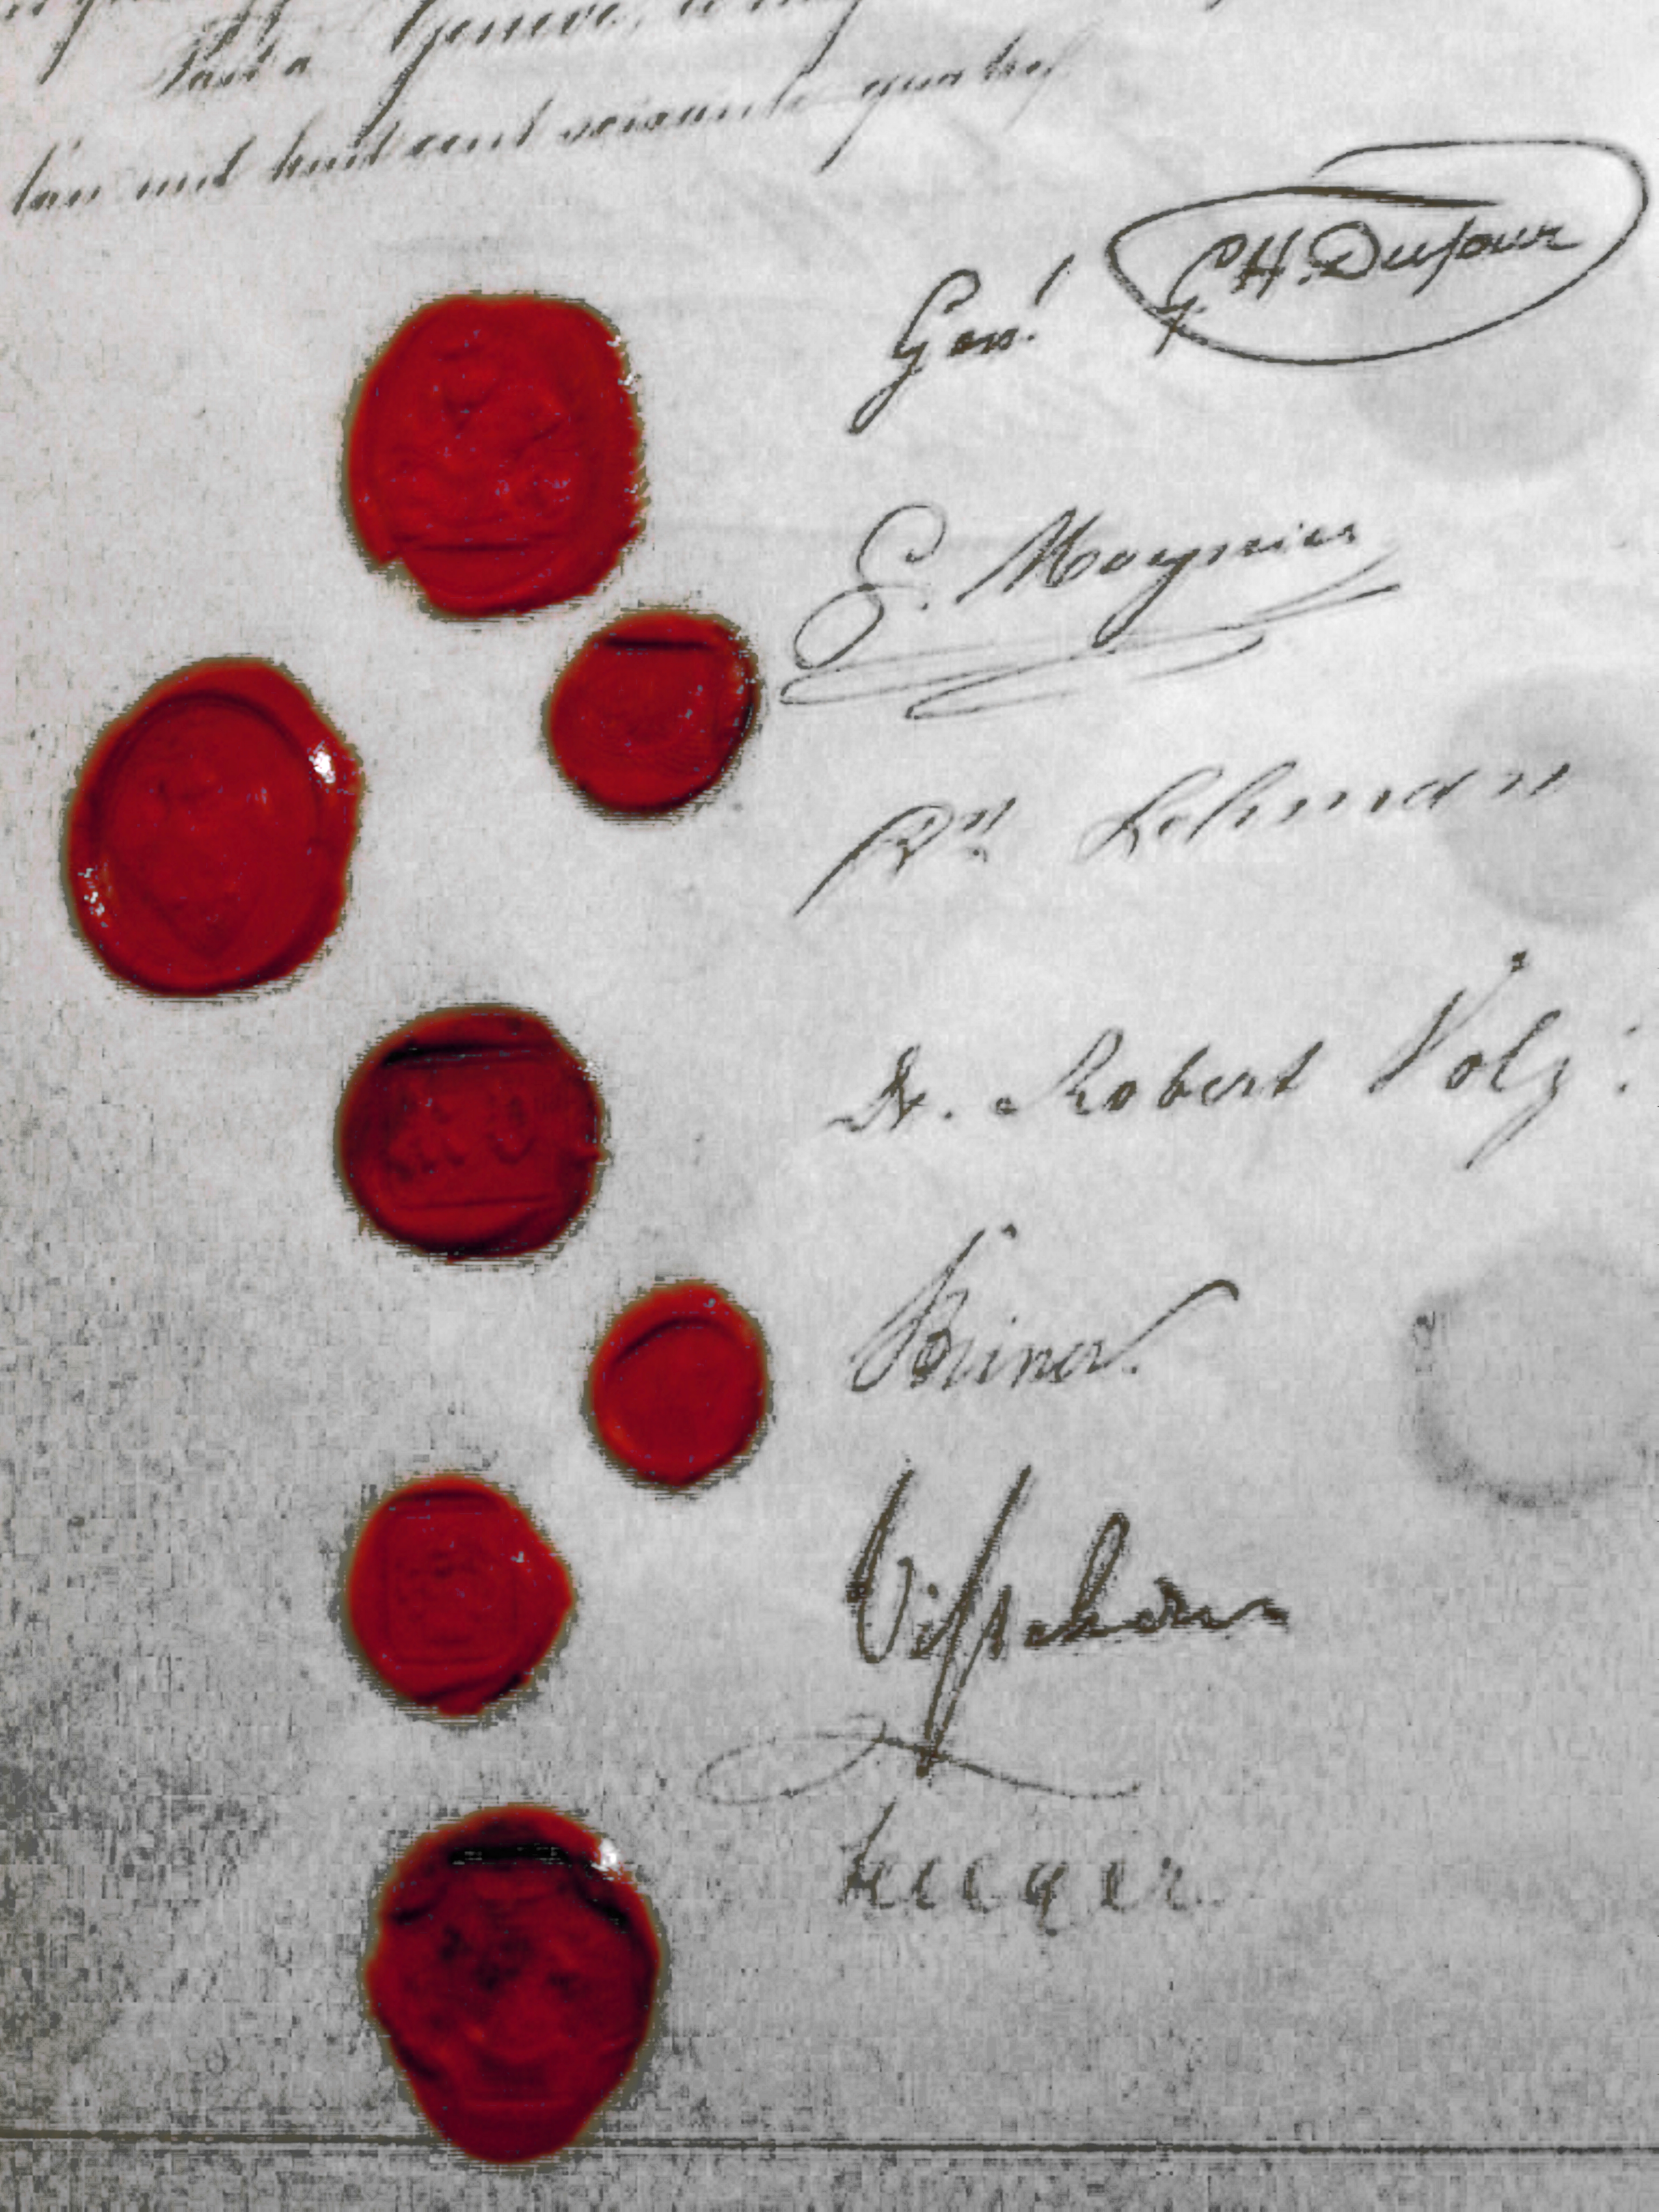 Fait à Genève, le
l'an mil huit cent soixante quatre
Gen.l G.H. Dufour
G. Moynier
Dr Lehmann
Dr. Robert Volz.
Steiner.
Visschers